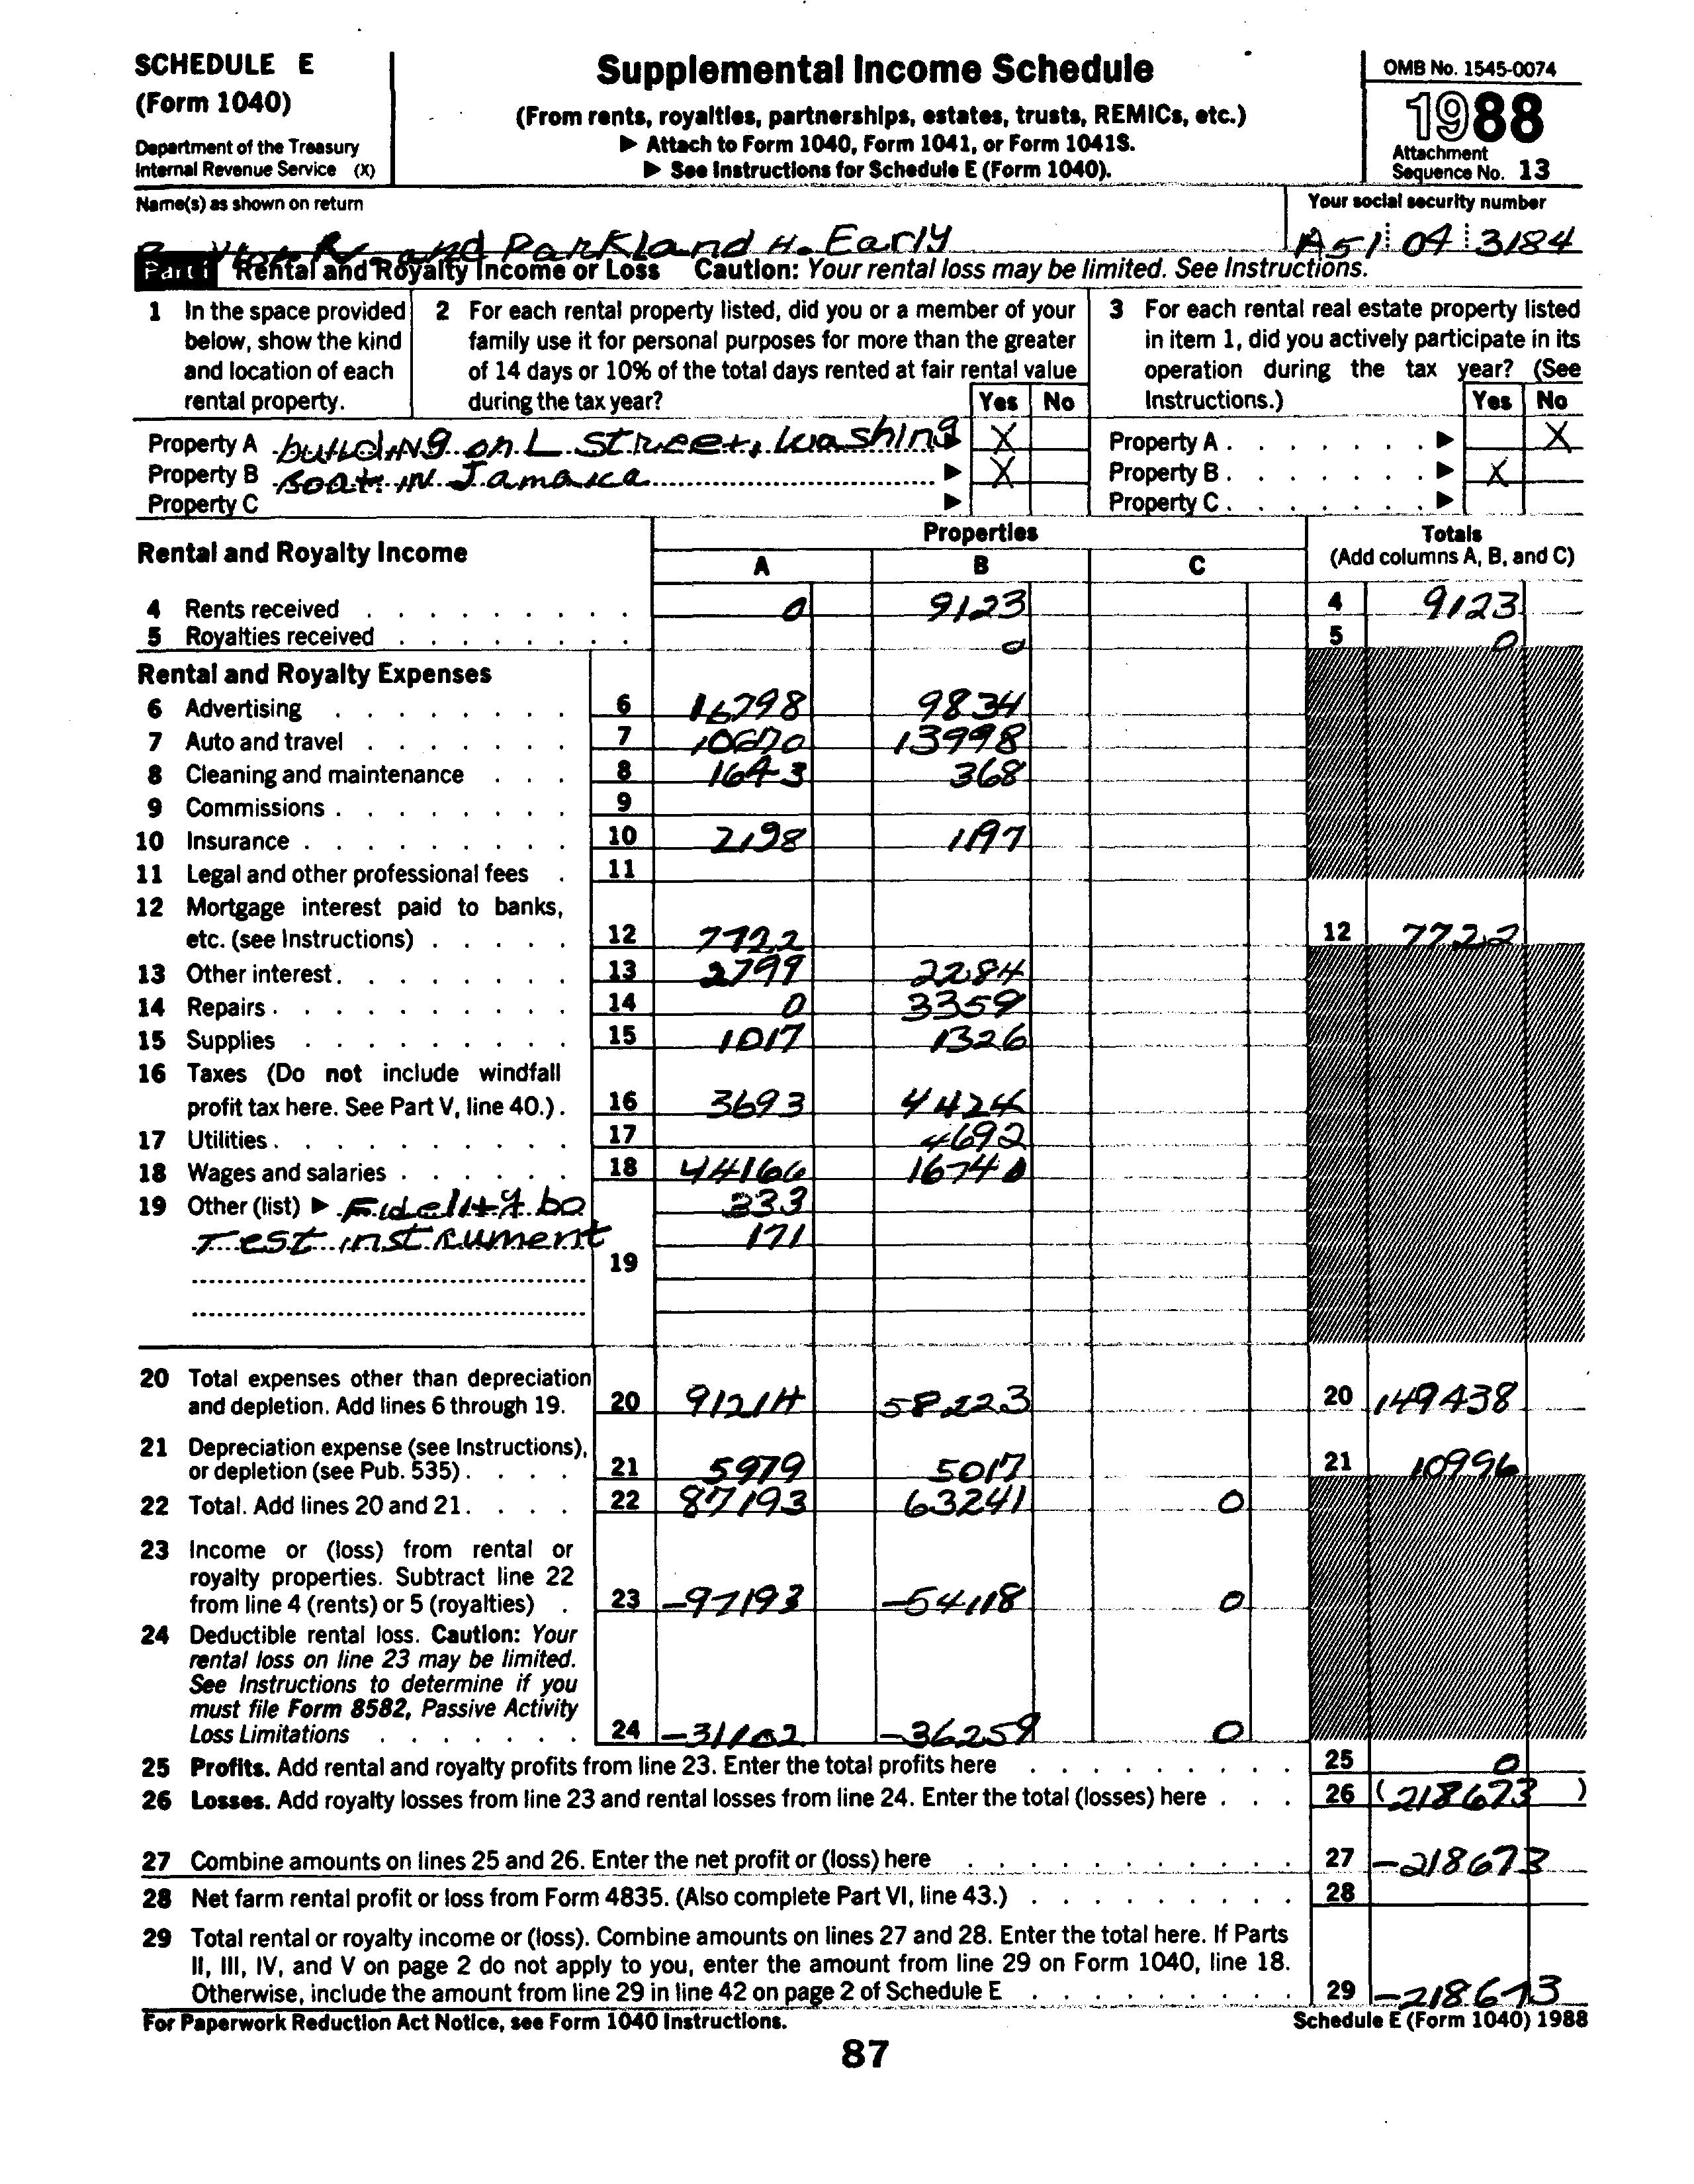 SCHEDULE E
(Form 1040)
Department of the Treasury
Internal Revenue Service (X)
Supplemental Income Schedule
(From rents, royalties, partnerships, estates, trusts, REMICs, etc.)
▶ Attach to Form 1040, Form 1041, or Form 1041S.
▶ See Instructions for Schedule E (Form 1040).
OMB No. 1545-0074
1988
Attachment
Sequence No. 13
Name(s) as shown on return
Your social security number
R. and Parkland H. Early
A51 04 3184
Part I Rental and Royalty Income or Loss Caution: Your rental loss may be limited. See Instructions.
1 In the space provided below, show the kind and location of each rental property.
2 For each rental property listed, did you or a member of your family use it for personal purposes for more than the greater of 14 days or 10% of the total days rented at fair rental value during the tax year? Yes No
3 For each rental real estate property listed in item 1, did you actively participate in its operation during the tax year? (See Instructions.) Yes No
Property A building on L Street, Washing ▶ X Property A ▶ X
Property B Boat in Jamaica ▶ X Property B ▶ X
Property C ▶ Property C ▶
Rental and Royalty Income
Properties
A B C
Totals
(Add columns A, B, and C)
4 Rents received 0 9123 4 9123
5 Royalties received 0 5 0
Rental and Royalty Expenses
6 Advertising 6 16798 9834
7 Auto and travel 7 10670 13998
8 Cleaning and maintenance 8 1643 368
9 Commissions 9
10 Insurance 10 2198 1197
11 Legal and other professional fees 11
12 Mortgage interest paid to banks,
etc. (see Instructions) 12 7722 12 7722
13 Other interest 13 2799 2284
14 Repairs 14 0 3359
15 Supplies 15 1017 1326
16 Taxes (Do not include windfall
profit tax here. See Part V, line 40.) 16 3693 4424
17 Utilities 17 4692
18 Wages and salaries 18 44166 16740
19 Other (list) ▶ Fidelity bo 333
Test instrument 171
19
20 Total expenses other than depreciation
and depletion. Add lines 6 through 19. 20 91214 58223 20 149438
21 Depreciation expense (see Instructions),
or depletion (see Pub. 535) 21 5979 5017 21 10996
22 Total. Add lines 20 and 21 22 87193 63241 0
23 Income or (loss) from rental or
royalty properties. Subtract line 22
from line 4 (rents) or 5 (royalties) 23 -97193 -54118 0
24 Deductible rental loss. Caution: Your
rental loss on line 23 may be limited.
See Instructions to determine if you
must file Form 8582, Passive Activity
Loss Limitations 24 -31102 -36259 0
25 Profits. Add rental and royalty profits from line 23. Enter the total profits here 25 0
26 Losses. Add royalty losses from line 23 and rental losses from line 24. Enter the total (losses) here 26 (218673)
27 Combine amounts on lines 25 and 26. Enter the net profit or (loss) here 27 -218673
28 Net farm rental profit or loss from Form 4835. (Also complete Part VI, line 43.) 28
29 Total rental or royalty income or (loss). Combine amounts on lines 27 and 28. Enter the total here. If Parts
II, III, IV, and V on page 2 do not apply to you, enter the amount from line 29 on Form 1040, line 18.
Otherwise, include the amount from line 29 in line 42 on page 2 of Schedule E 29 -218673
For Paperwork Reduction Act Notice, see Form 1040 Instructions.
Schedule E (Form 1040) 1988
87